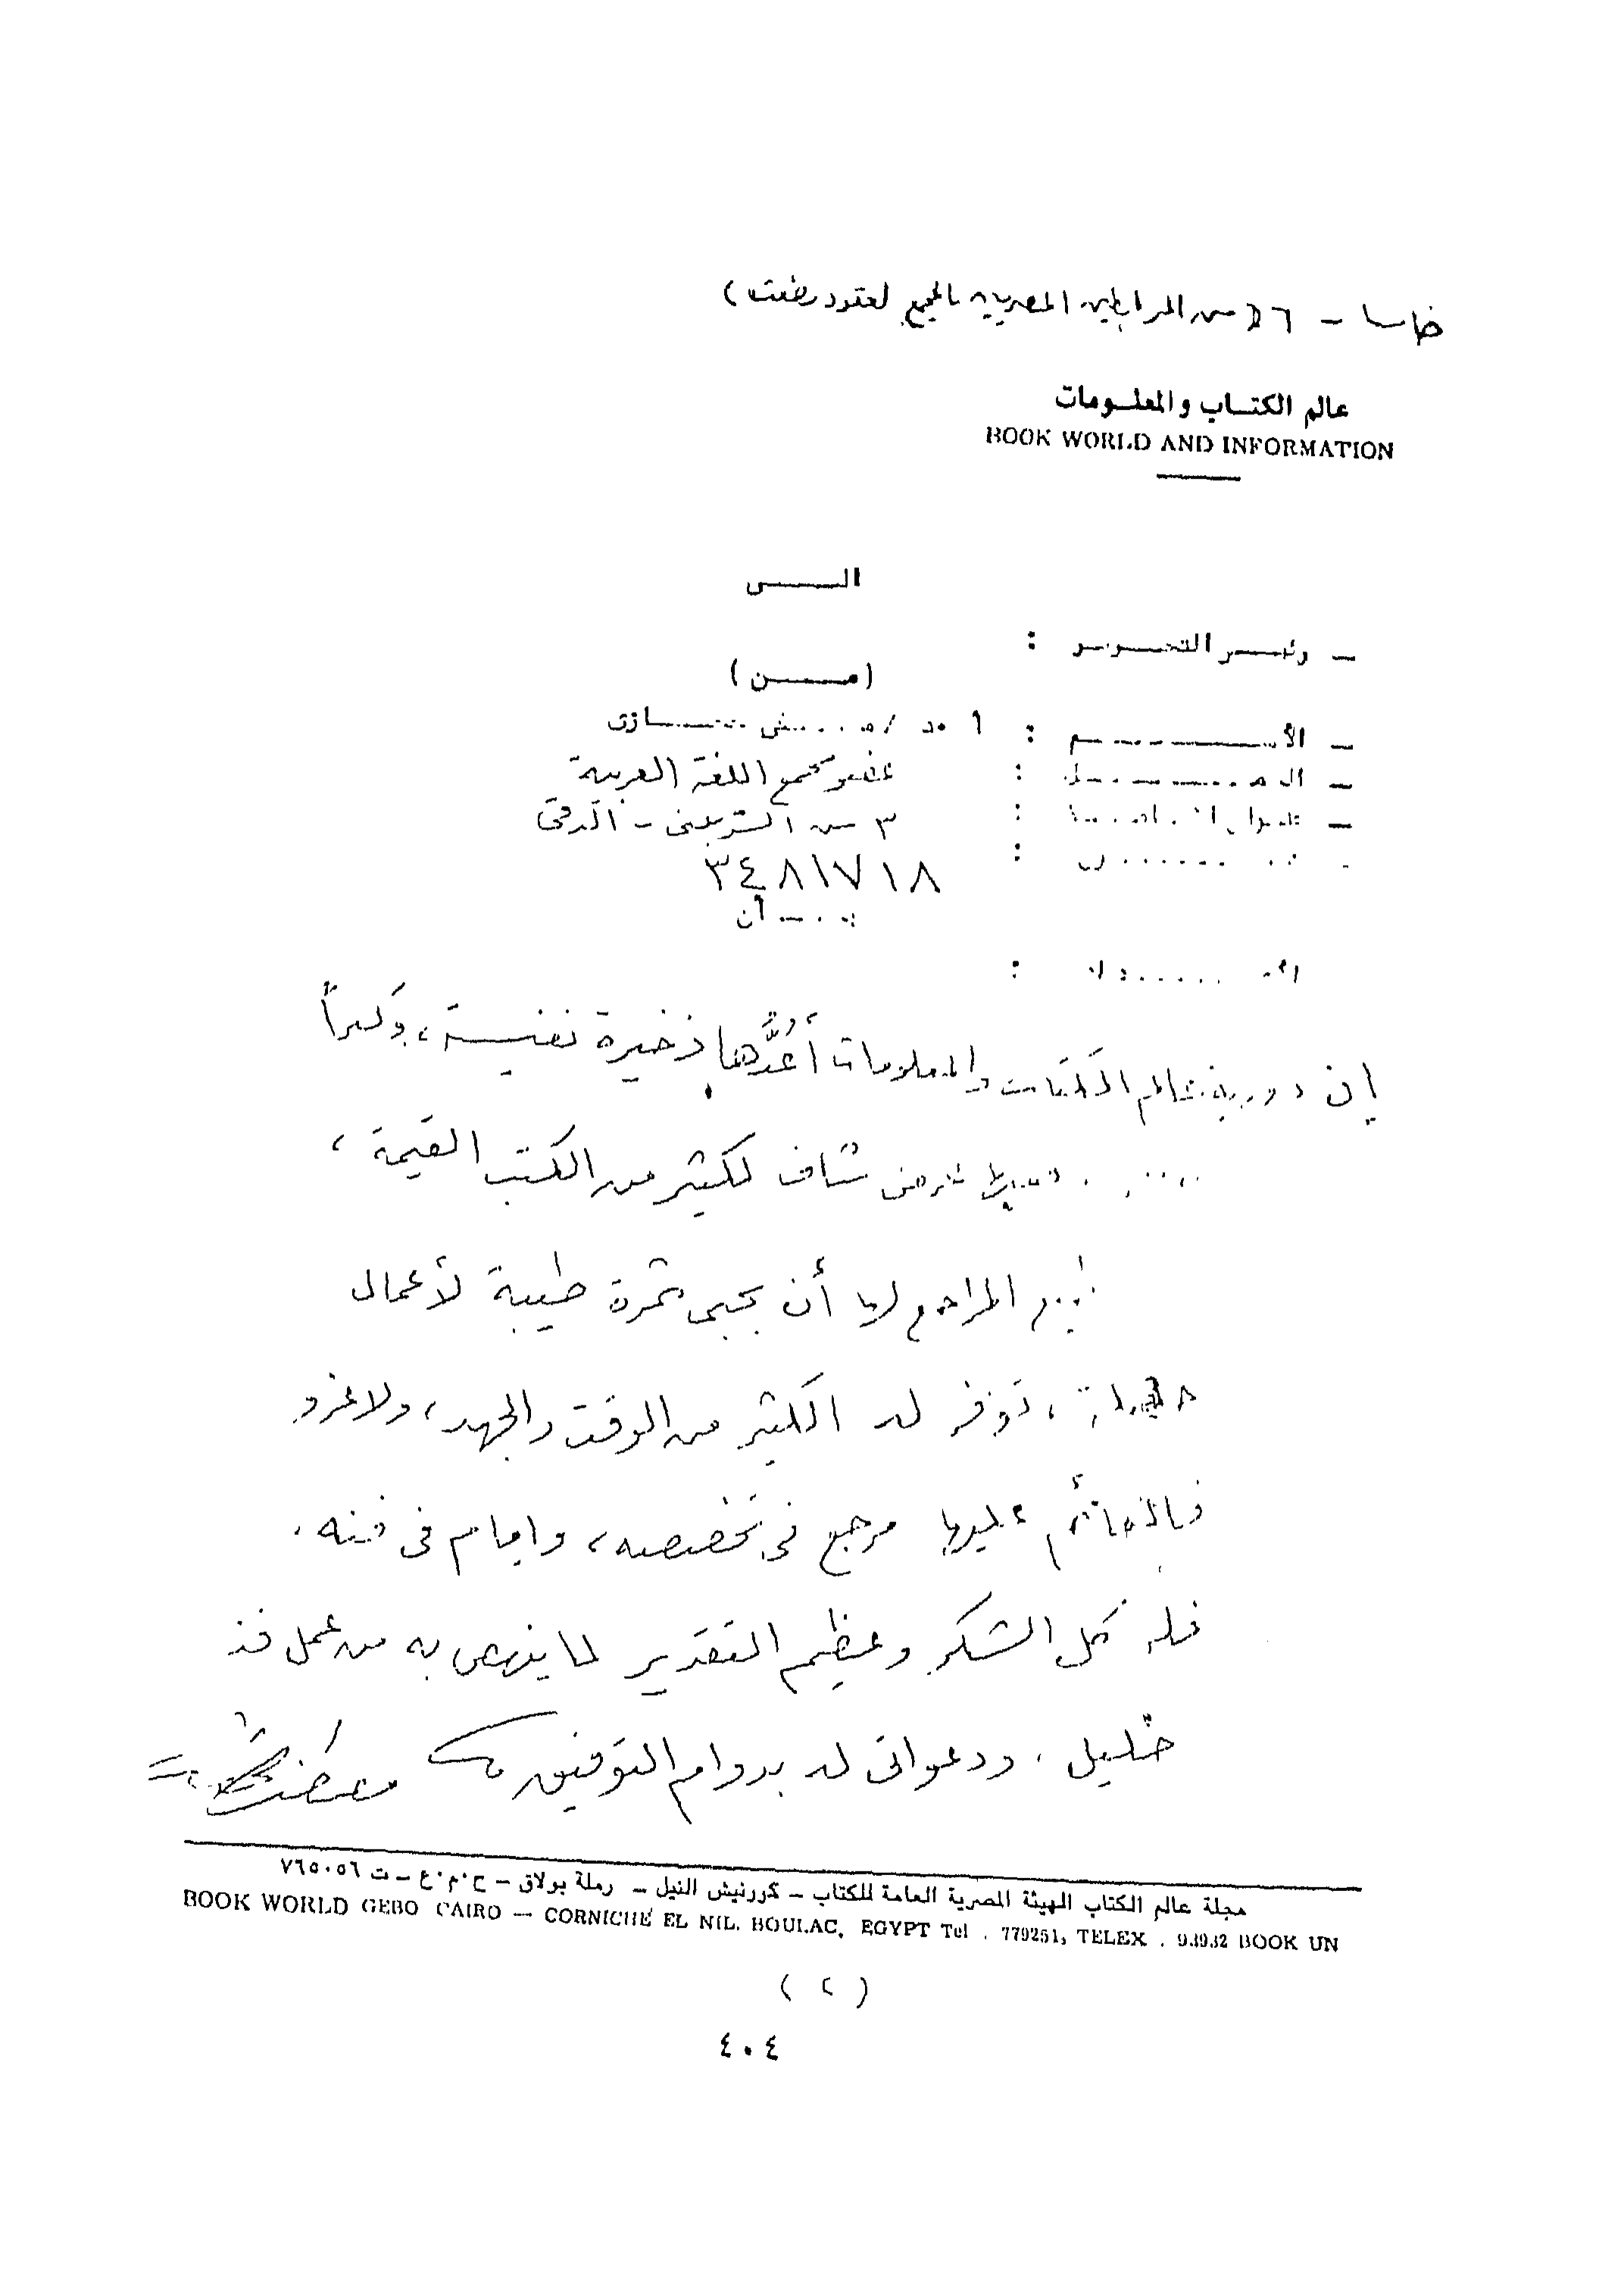 خامسا – ٢٦ من المرابطين المصريين بالمجمع لعقود مضت)
عالم الكتاب والمعلومات
BOOK WORLD AND INFORMATION
الى
– رئيس التحرير :
(من)
– الأسم : أ ٠د /
: عضو مجمع اللغة العربية
– : ٣ ش الشربينى – الدقى
: ٣٤٨١٧١٨
إن دورية عالم الكتاب والمعلومات أعُدُّها ذخيرة نفيسة،
عرض شاف لكثير من الكتب القيمة ،
المراجع لها أن يجنى ثمرة طيبة لأعمال
، توفر له الكثير من الوقت والجهد، ولا غرو
فالقائم عليها مرجع فى تخصصه، وإمام فى فنه .
فله كل الشكر وعظيم التقدير لما ينهض به من عمل فذ
جليل ، ودعواتى له بدوام التوفيق
مجلة عالم الكتاب الهيئة المصرية العامة للكتاب – كورنيش النيل – رملة بولاق – ج٠م٠ع – ت ٧٦٥٠٥٦
BOOK WORLD GEBO CAIRO — CORNICHE EL NIL. BOULAC, EGYPT Tel . 779251, TELEX . 93932 BOOK UN
( ٢ )
٤٠٤